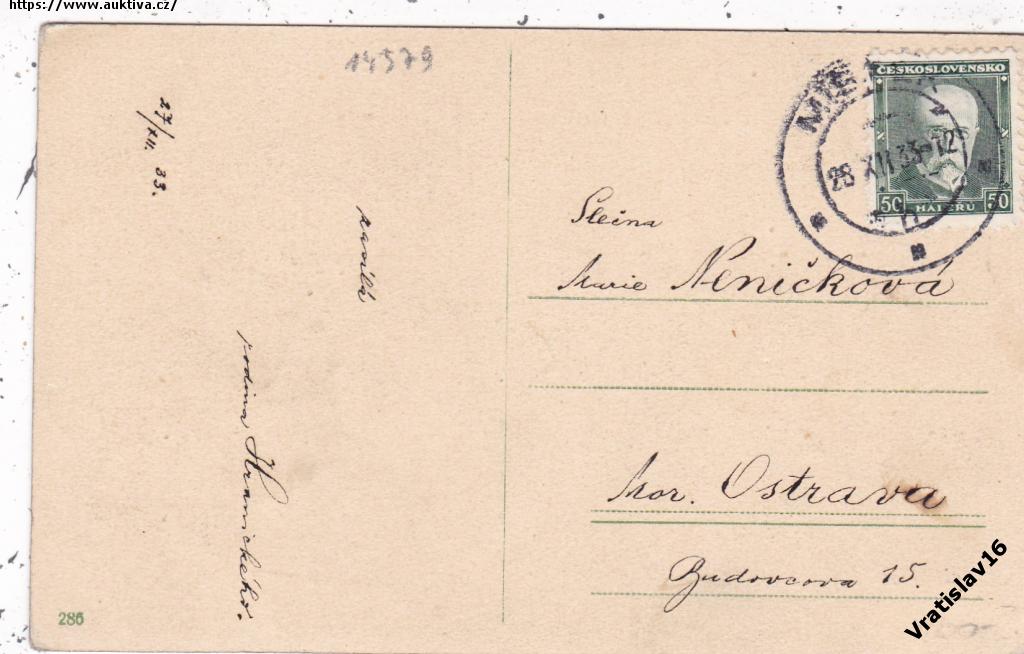 https://www.auktiva.cz/
14579
27/XII. 33.
rodina Hranického.
ČESKOSLOVENSKO
50 HALÉRŮ 50
28 XII 33-12
Slečna
Marie Neničková
Mor. Ostrava
Budovcova 15.
286
Vratislav16